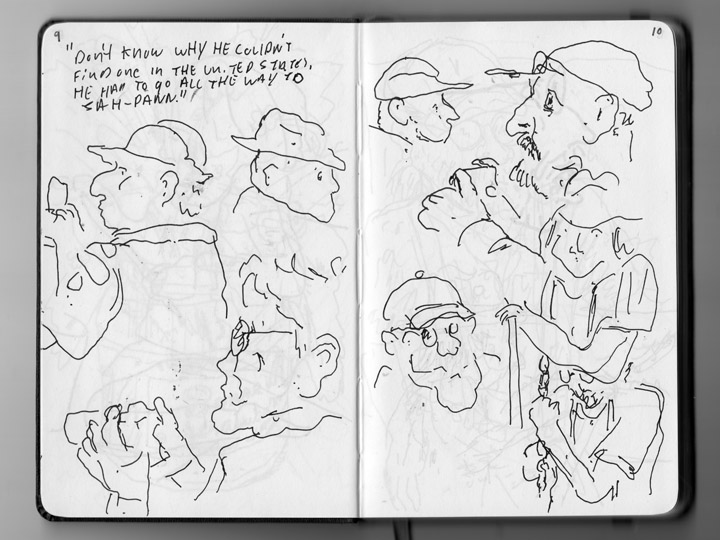 9
"Don't know why HE COULDN'T
FIND one in THE UNITED STATES,
HE HAD TO go ALL THE WAY TO
SAH-DAWN."
10